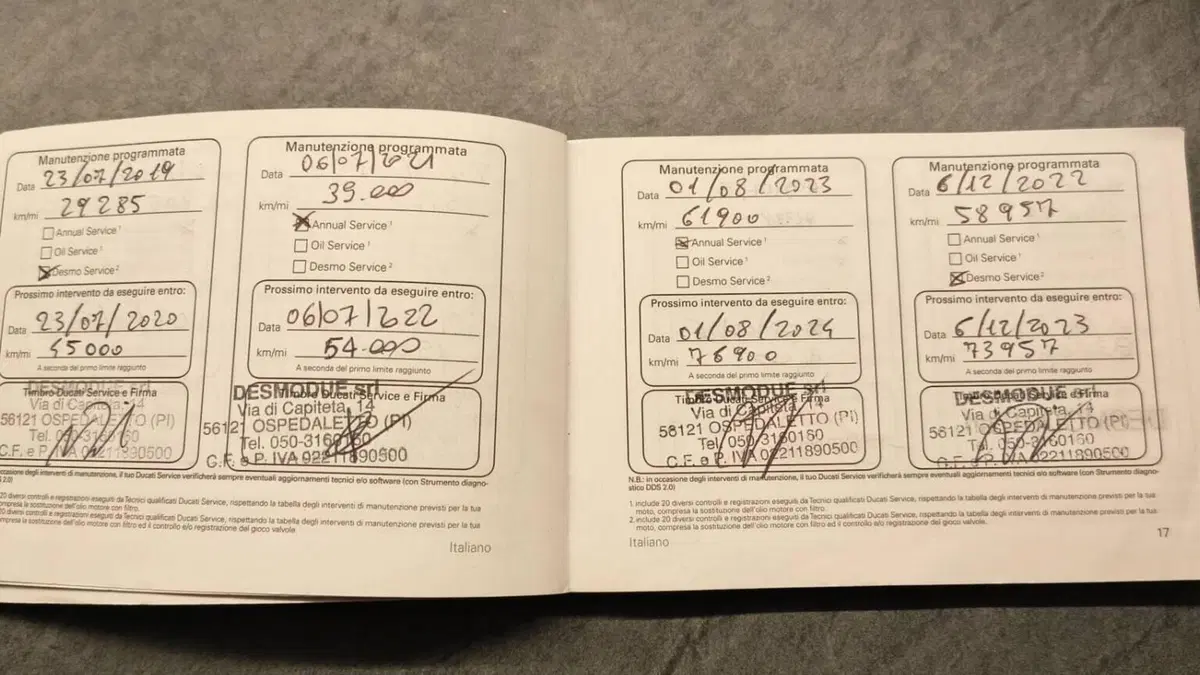 Manutenzione programmata
Data 23/07/2019
km/mi 29285
Annual Service ¹
Oil Service ¹
Desmo Service ²
Prossimo intervento da eseguire entro:
Data 23/07/2020
km/mi 45000
A seconda del primo limite raggiunto
DESMODUE srl
Timbro Ducati Service e Firma
Via di Capiteta, 14
56121 OSPEDALETTO (PI)
Tel. 050-3160160
C.F. e P. IVA 02211890500
Manutenzione programmata
Data 06/07/2021
km/mi 39.000
Annual Service ¹
Oil Service ¹
Desmo Service ²
Prossimo intervento da eseguire entro:
Data 06/07/2022
km/mi 54.000
A seconda del primo limite raggiunto
DESMODUE srl
Timbro Ducati Service e Firma
Via di Capiteta, 14
56121 OSPEDALETTO (PI)
Tel. 050-3160160
C.F. e P. IVA 02211890500
occasione degli interventi di manutenzione, il tuo Ducati Service verificherà sempre eventuali aggiornamenti tecnici e/o software (con Strumento diagno-
2.0)
20 diversi controlli e registrazioni eseguiti da Tecnici qualificati Ducati Service, rispettando la tabella degli interventi di manutenzione previsti per la tua
compresa la sostituzione dell'olio motore con filtro.
20 diversi controlli e registrazioni eseguiti da Tecnici qualificati Ducati Service, rispettando la tabella degli interventi di manutenzione previsti per la tua
compresa la sostituzione dell'olio motore con filtro ed il controllo e/o registrazione del gioco valvole.
Italiano
Manutenzione programmata
Data 01/08/2023
km/mi 61900
Annual Service ¹
Oil Service ¹
Desmo Service ²
Prossimo intervento da eseguire entro:
Data 01/08/2024
km/mi 76900
A seconda del primo limite raggiunto
DESMODUE srl
Timbro Ducati Service e Firma
Via di Capiteta, 14
56121 OSPEDALETTO (PI)
Tel. 050-3160160
C.F. e P. IVA 02211890500
Manutenzione programmata
Data 6/12/2022
km/mi 58957
Annual Service ¹
Oil Service ¹
Desmo Service ²
Prossimo intervento da eseguire entro:
Data 6/12/2023
km/mi 73957
A seconda del primo limite raggiunto
DESMODUE srl
Timbro Ducati Service e Firma
Via di Capiteta, 14
56121 OSPEDALETTO (PI)
Tel. 050-3160160
C.F. e P. IVA 02211890500
N.B.: in occasione degli interventi di manutenzione, il tuo Ducati Service verificherà sempre eventuali aggiornamenti tecnici e/o software (con Strumento diagno-
stico DDS 2.0)
1. include 20 diversi controlli e registrazioni eseguiti da Tecnici qualificati Ducati Service, rispettando la tabella degli interventi di manutenzione previsti per la tua
moto, compresa la sostituzione dell'olio motore con filtro.
2. include 20 diversi controlli e registrazioni eseguiti da Tecnici qualificati Ducati Service, rispettando la tabella degli interventi di manutenzione previsti per la tua
moto, compresa la sostituzione dell'olio motore con filtro ed il controllo e/o registrazione del gioco valvole.
Italiano
17